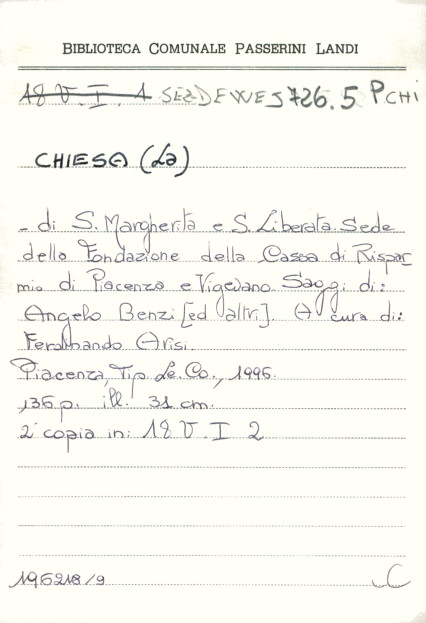 BIBLIOTECA COMUNALE PASSERINI LANDI
18 V. I. 1 SEZ DEWEJ 726.5 P CHI
CHIESA (La)
- di S. Margherita e S. Liberata. Sede
della Fondazione della Cassa di Rispar
mio di Piacenza e Vigevano. Saggi di:
Angelo Benzi [ed altri]. A cura di:
Ferdinando Arisi.
Piacenza, Tip. Le. Co., 1995.
135 p. ill. 31 cm.
2ª copia in: 18 V. I 2
195218/9
C